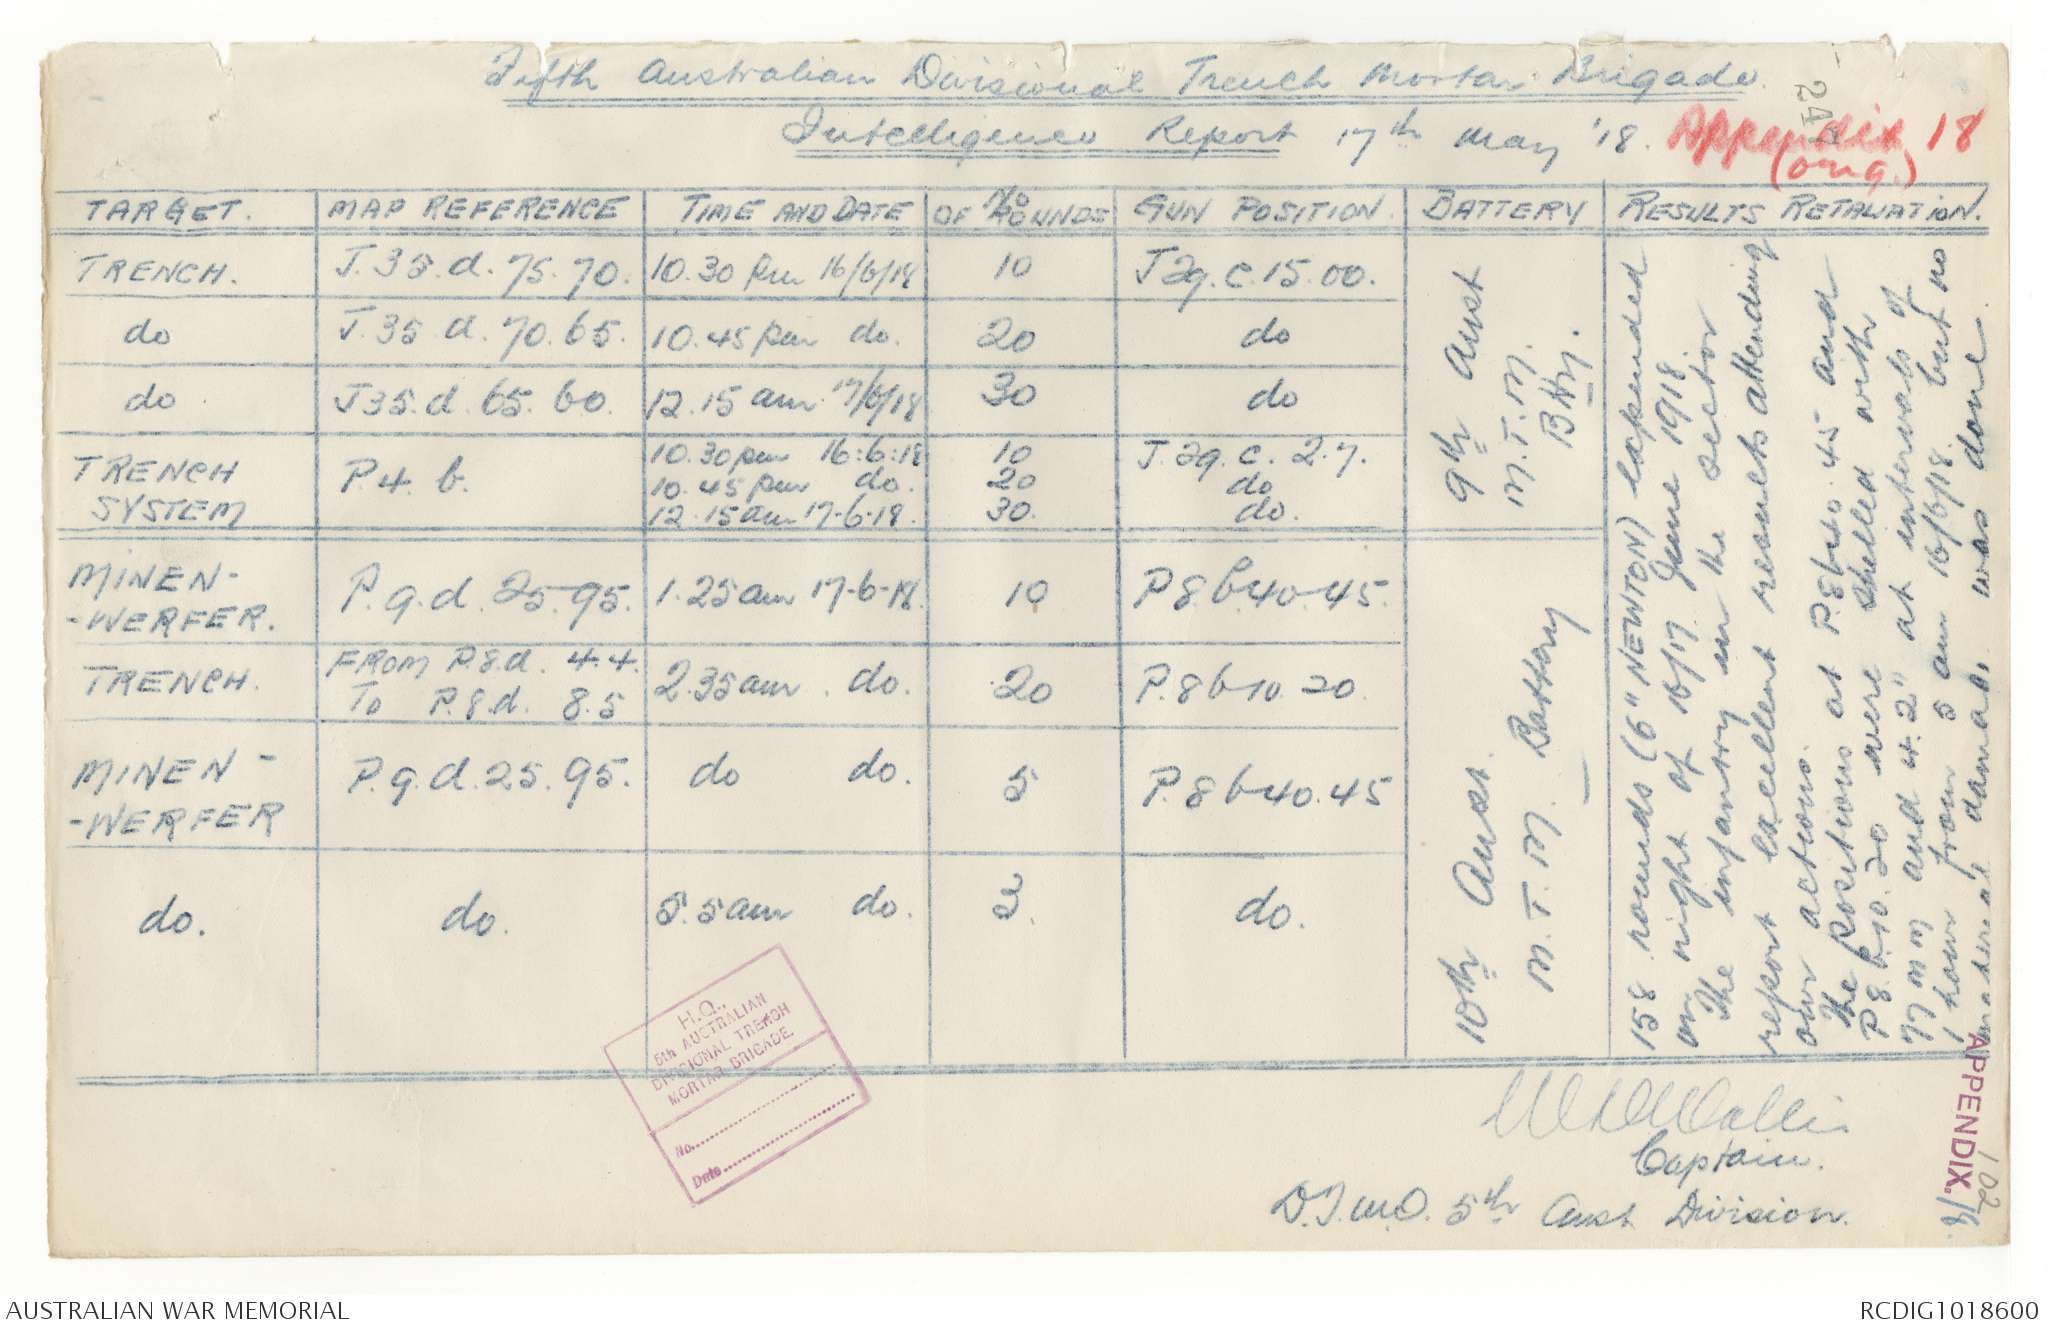 Fifth Australian Divisional Trench Mortar Brigade.
Intelligence Report 17th May '18.
Appendix 18
(orig.)
24
TARGET. MAP REFERENCE TIME AND DATE No OF ROUNDS GUN POSITION. BATTERY RESULTS RETALIATION.
TRENCH. J.35.d.75.70. 10.30 pm 16/6/18 10 J29.c.15.00.
do J.35.d.70.65. 10.45 pm do. 20 do
do J35.d.65.60. 12.15 am 17/6/18 30 do
TRENCH SYSTEM P.4.b. 10.30 pm 16:6:18 10 J.29.c.2.7.
10.45 pm do. 20 do
12.15 am 17-6-18. 30. do.
9th Aust
M.T.M.
Bty.
MINEN-
-WERFER. P.9.d.25.95. 1.25 am 17-6-18. 10 P8.b.40-45.
TRENCH. FROM P.8.d. 4.4.
TO P.8.d. 8.5 2.35 am. do. 20 P.8b10.20.
MINEN-
-WERFER P.9.d.25.95. do do. 5 P.8b40.45
do. do. 5.5 am do. do.
10th Aust.
M.T.M. Battery
158 rounds (6" NEWTON) expended
on night of 16/17 June 1918.
The infantry in the sector
report excellent results attending
our actions.
The positions at P.8b40.45 and
P8.b.10.20 were shelled with
77 mm and 4.2" at intervals of
1 hour from 5 am 16/6/18. but no
material damage was done.
H.Q.,
5th AUSTRALIAN
DIVISIONAL TRENCH
MORTAR BRIGADE.
No.
Date
Captain.
D.T.M.O. 5th Aust Division.
APPENDIX. 18.
102
AUSTRALIAN WAR MEMORIAL
RCDIG1018600